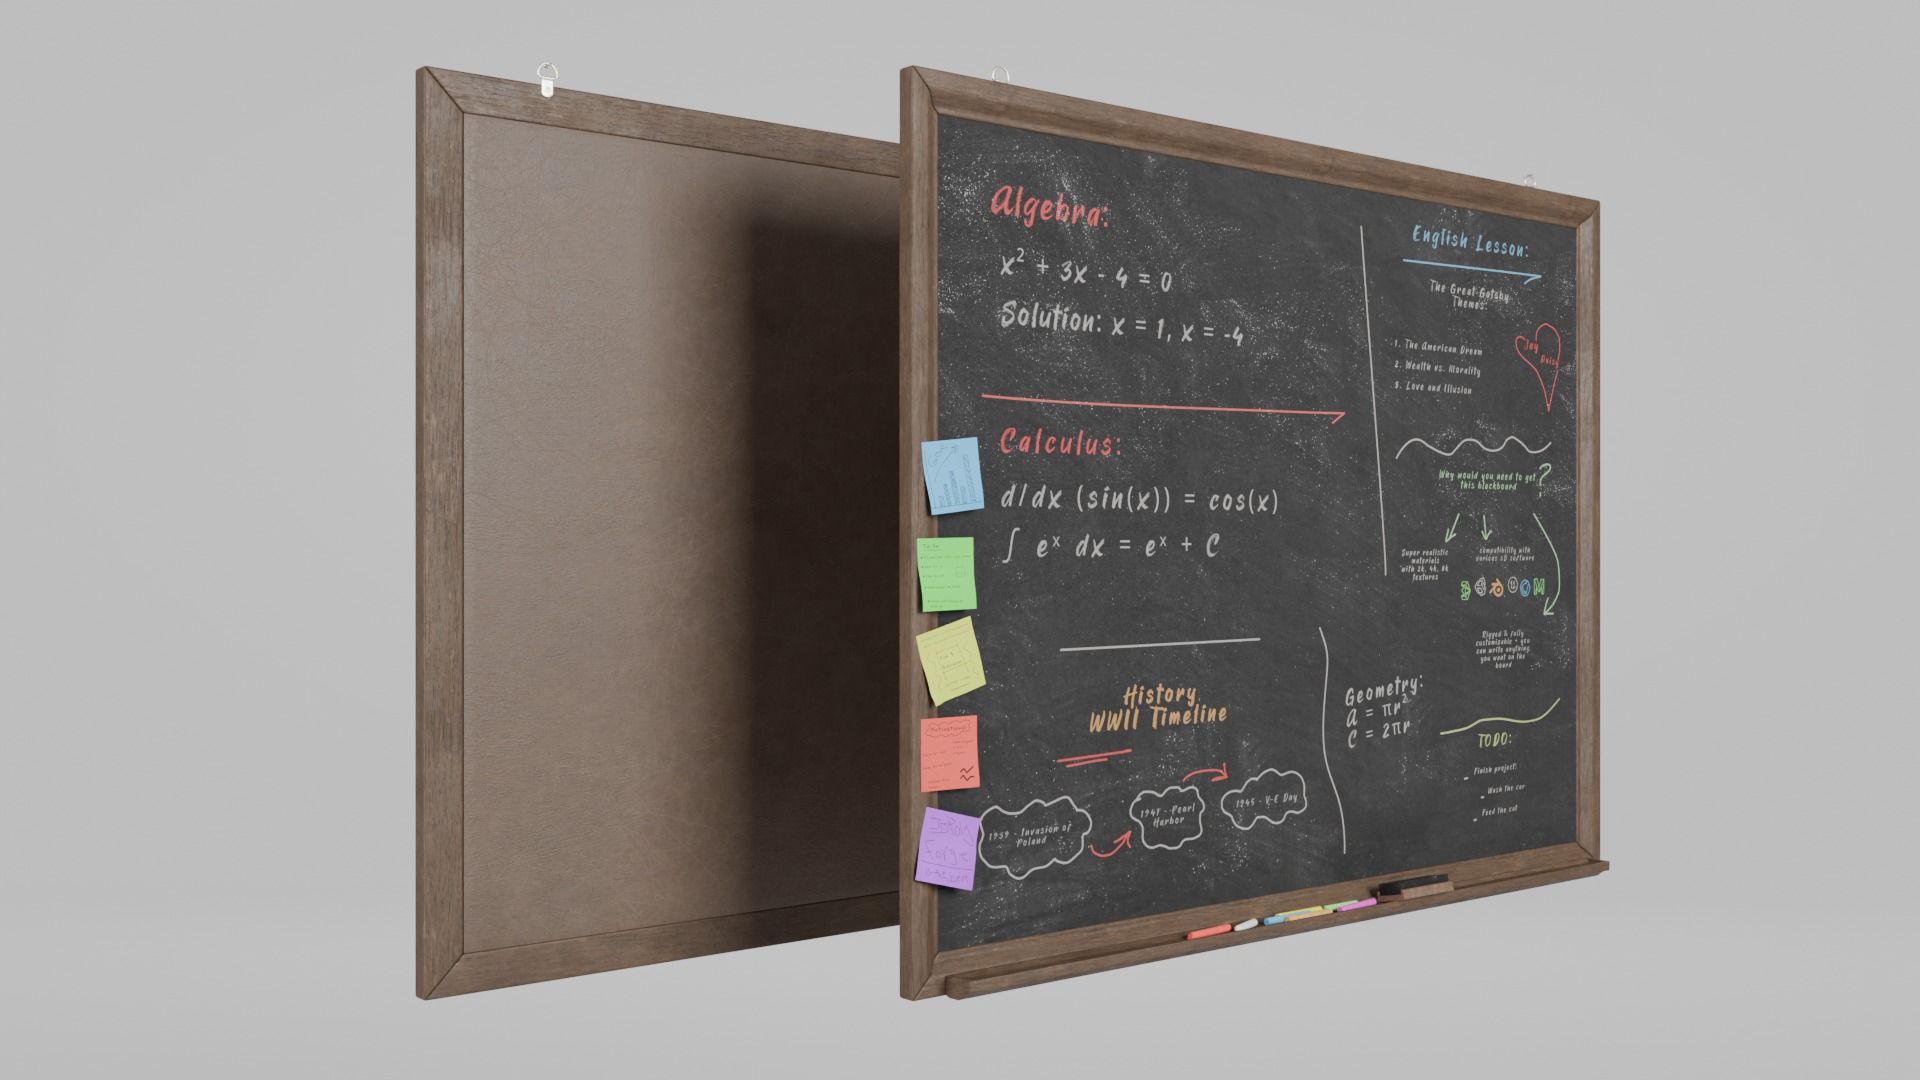 Algebra:
x² + 3x - 4 = 0
Solution: x = 1, x = -4
Calculus:
d/dx (sin(x)) = cos(x)
∫ eˣ dx = eˣ + C
History
WWII Timeline
1939 - Invasion of
Poland
1941 - Pearl
Harbor
1945 - V-E Day
English Lesson:
The Great Gatsby
Themes:
1. The American Dream
2. Wealth vs. Morality
3. Love and Illusion
Jay
Daisy
Why would you need to get
this blackboard
?
Super realistic
materials
with 2k, 4k, 8k
textures
compatibility with
various 3D software
Rigged & fully
customizable - you
can write anything
you want on the
board
Geometry:
A = πr²
C = 2πr
TODO:
- Finish project!
- Wash the car
- Feed the cat
Motivational
3DPoly
Forge